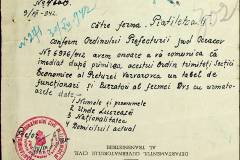 către ferma
Conform Ordinului Prefecturii Jud Oceacov
No 6976/942 avem onoare a vă comunica că
imediat după primirea acestui Ordin trimiteți Secției
Economice al Preturei Varvarovca un tabel de
funcționari și lucrători al fermei Dvs cu urmato-
arele date:
1 Numele și pronumele
2 Unde Lucrează
3 Naționalitatea
4 Domiciliul actual
DEPARTAMENTUL GUVERNATORULUI CIVIL
AL TRANSNISTRIEI